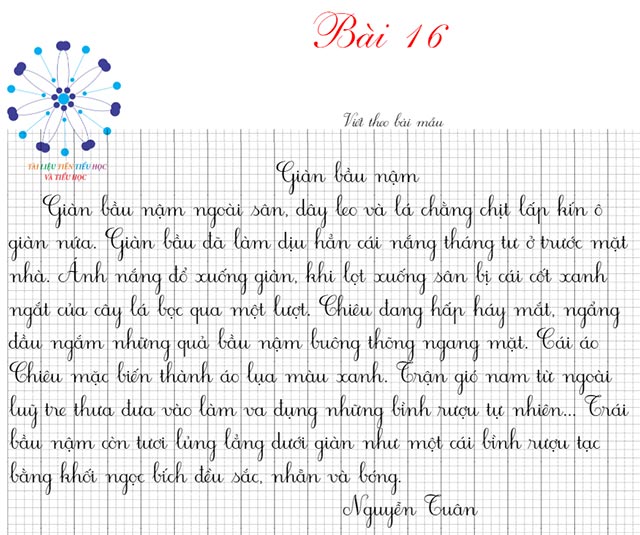 Bài 16
Viết theo bài mẫu
TÀI LIỆU TIỀN TIỂU HỌC
VÀ TIỂU HỌC
Giàn bầu nậm
Giàn bầu nậm ngoài sân, dây leo và lá chằng chịt lấp kín ô
giàn nứa. Giàn bầu đã làm dịu hẳn cái nắng tháng tư ở trước mặt
nhà. Ánh nắng đổ xuống giàn, khi lọt xuống sân bị cái cốt xanh
ngắt của cây lá bọc qua một lượt. Chiêu đang hấp háy mắt, ngẩng
đầu ngắm những quả bầu nậm buông thõng ngang mặt. Cái áo
Chiêu mặc biến thành áo lụa màu xanh. Trận gió nam từ ngoài
luỹ tre thưa đưa vào làm va đụng những bình rượu tự nhiên... Trái
bầu nậm còn tươi lủng lẳng dưới giàn như một cái bình rượu tạc
bằng khối ngọc bích đều sắc, nhẵn và bóng.
Nguyễn Tuân